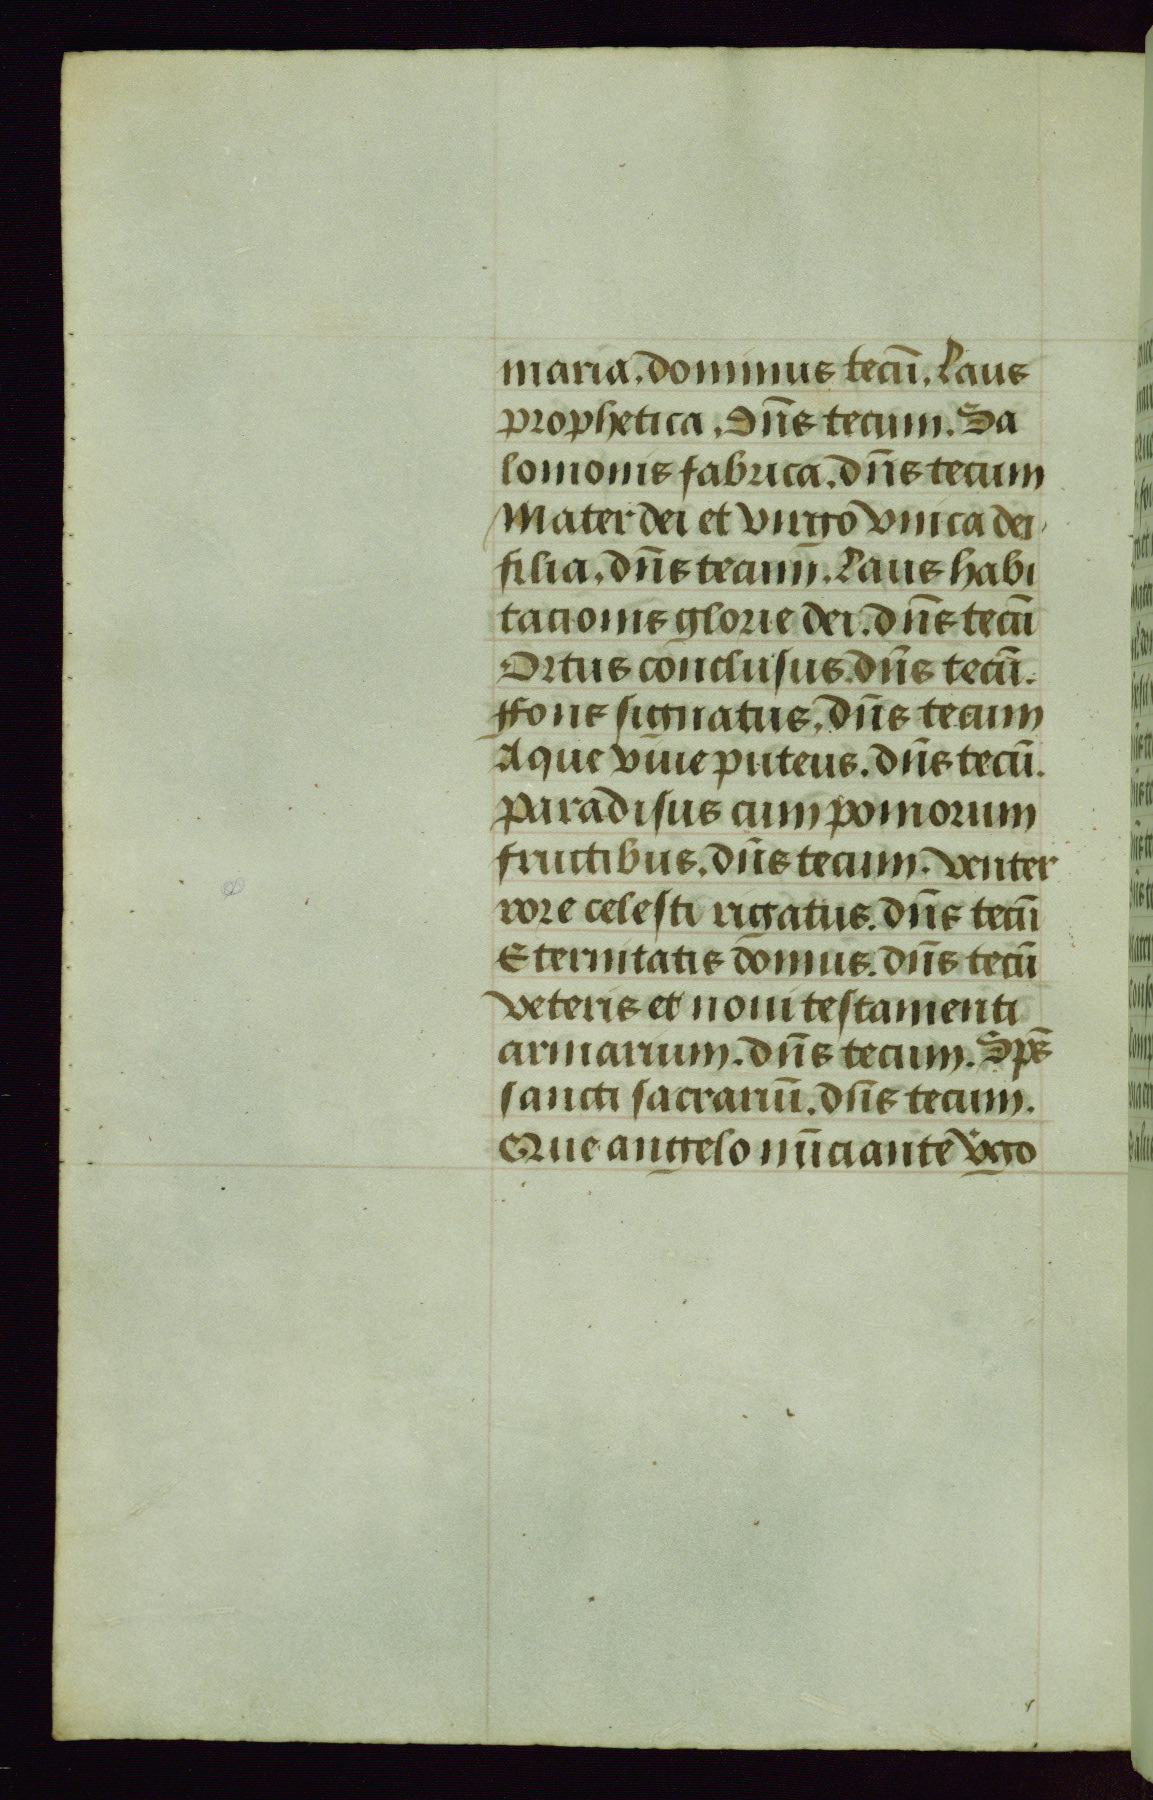 maria. dominus tecũ. Laus
prophetica. Dñs tecum. Sa
lomonis fabrica. dñs tecum
Mater dei et virgo vnica dei
filia. dñs tecum. Laus habi
tacionis glorie dei. dñs tecũ
Ortus conclusus. dñs tecũ.
ffons signatus. dñs tecum
Aque viue puteus. dñs tecũ.
paradisus cum pomorum
fructibus. dñs tecum. venter
rore celesti rigatus. dñs tecũ
Eternitatis domus. dñs tecũ
veteris et noui testamenti
armarium. dñs tecum. Sps̃
sancti sacrariũ. dñs tecum.
Que angelo nũciante v̾go